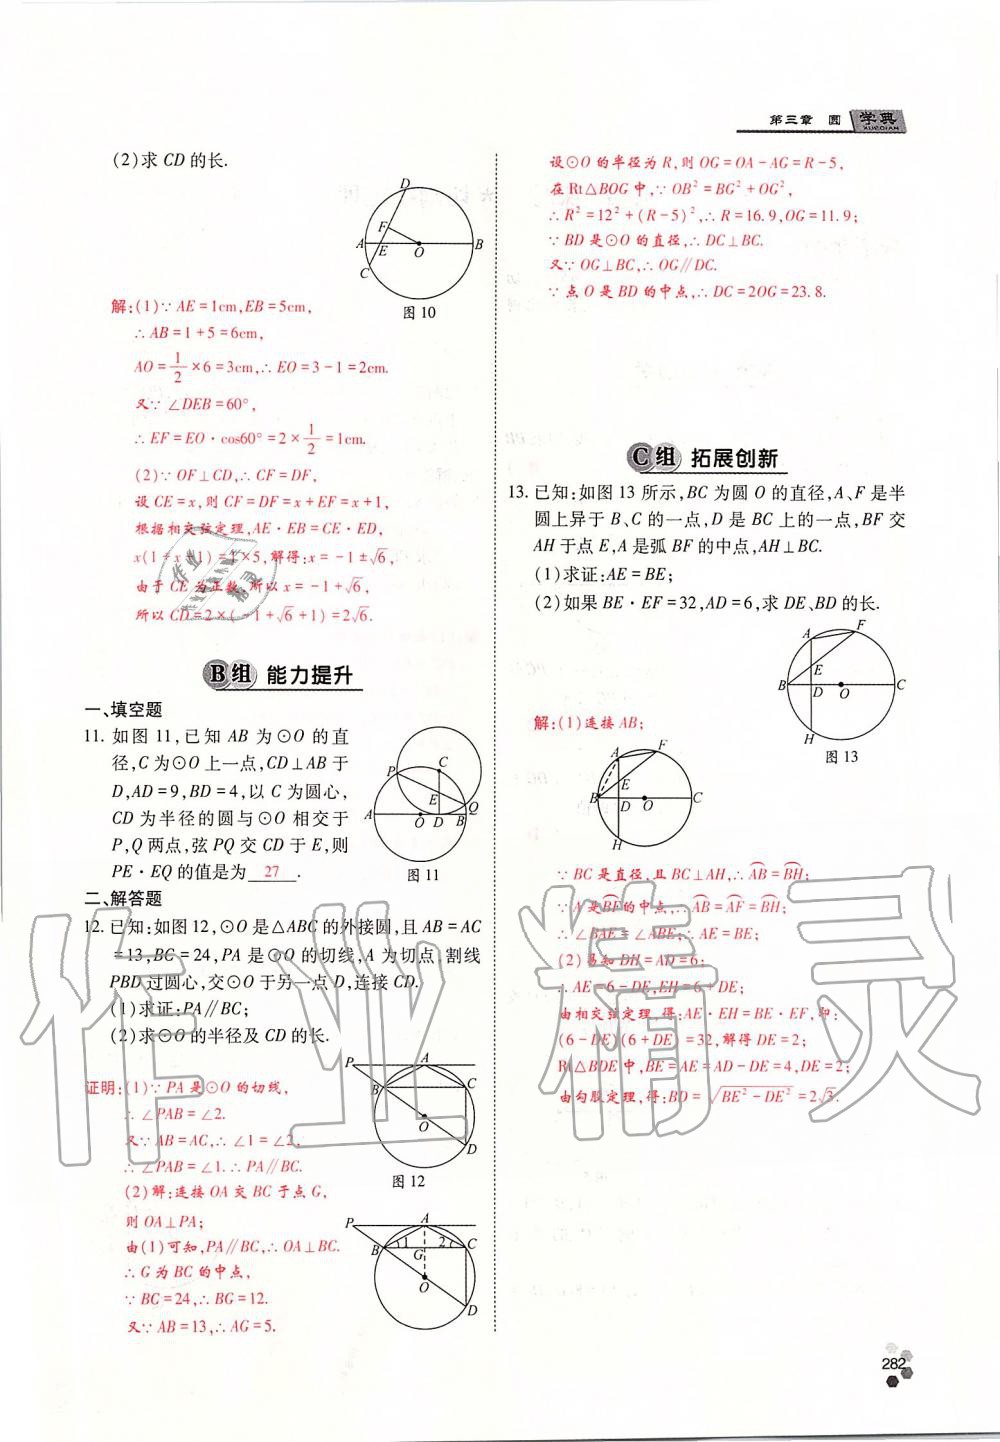 第三章 圆 学典
XUEDIAN
(2)求 CD 的长.
D
F
A
E
O
B
C
图 10
解:(1)∵ AE=1cm,EB=5cm,
∴ AB=1+5=6cm,
AO=1/2×6=3cm,∴ EO=3-1=2cm.
又∵ ∠DEB=60°,
∴ EF=EO·cos60°=2×1/2=1cm.
(2)∵ OF⊥CD,∴ CF=DF,
设 CE=x,则 CF=DF=x+EF=x+1,
根据相交弦定理,AE·EB=CE·ED,
x(1+x+1)=1×5,解得:x=-1±√6,
由于 CE 为正数,所以 x=-1+√6,
所以 CD=2×(-1+√6+1)=2√6.
B组 能力提升
一、填空题
11. 如图 11,已知 AB 为⊙O 的直
径,C 为⊙O 上一点,CD⊥AB 于
D,AD=9,BD=4,以 C 为圆心,
CD 为半径的圆与⊙O 相交于
P,Q 两点,弦 PQ 交 CD 于 E,则
PE·EQ 的值是为 27 .
P
C
E
Q
A
O
D
B
图 11
二、解答题
12. 已知:如图 12,⊙O 是△ABC 的外接圆,且 AB=AC
=13,BC=24,PA 是⊙O 的切线,A 为切点,割线
PBD 过圆心,交⊙O 于另一点 D,连接 CD.
(1)求证:PA∥BC;
(2)求⊙O 的半径及 CD 的长.
P
A
B
C
O
D
图 12
证明:(1)∵ PA 是⊙O 的切线,
∴ ∠PAB=∠2.
又∵ AB=AC,∴ ∠1=∠2,
∴ ∠PAB=∠1.∴ PA∥BC.
(2)解:连接 OA 交 BC 于点 G,
则 OA⊥PA;
由(1)可知,PA∥BC,∴ OA⊥BC.
∴ G 为 BC 的中点,
∵ BC=24,∴ BG=12.
又∵ AB=13,∴ AG=5.
P
A
B
1
2
C
G
O
D
设⊙O 的半径为 R,则 OG=OA-AG=R-5,
在 Rt△BOG 中,∵ OB²=BG²+OG²,
∴ R²=12²+(R-5)²,∴ R=16.9,OG=11.9;
∵ BD 是⊙O 的直径,∴ DC⊥BC.
又∵ OG⊥BC,∴ OG∥DC.
∵ 点 O 是 BD 的中点,∴ DC=2OG=23.8.
C组 拓展创新
13. 已知:如图 13 所示,BC 为圆 O 的直径,A、F 是半
圆上异于 B、C 的一点,D 是 BC 上的一点,BF 交
AH 于点 E,A 是弧 BF 的中点,AH⊥BC.
(1)求证:AE=BE;
(2)如果 BE·EF=32,AD=6,求 DE、BD 的长.
A
F
E
B
D
O
C
H
图 13
解:(1)连接 AB;
A
F
B
D
O
C
H
∵ BC 是直径,且 BC⊥AH,∴ AB=BH;
∵ A 是 BF 的中点,∴ AB=AF=BH;
∴ ∠BAE=∠ABE,∴ AE=BE;
(2)易知 DH=AD=6;
∴ AE=6-DE,EH=6+DE;
由相交弦定理,得:AE·EH=BE·EF,即:
(6-DE)(6+DE)=32,解得 DE=2;
Rt△BDE 中,BE=AE=AD-DE=4,DE=2;
由勾股定理,得:BD=√(BE²-DE²)=2√3.
作业精灵
282